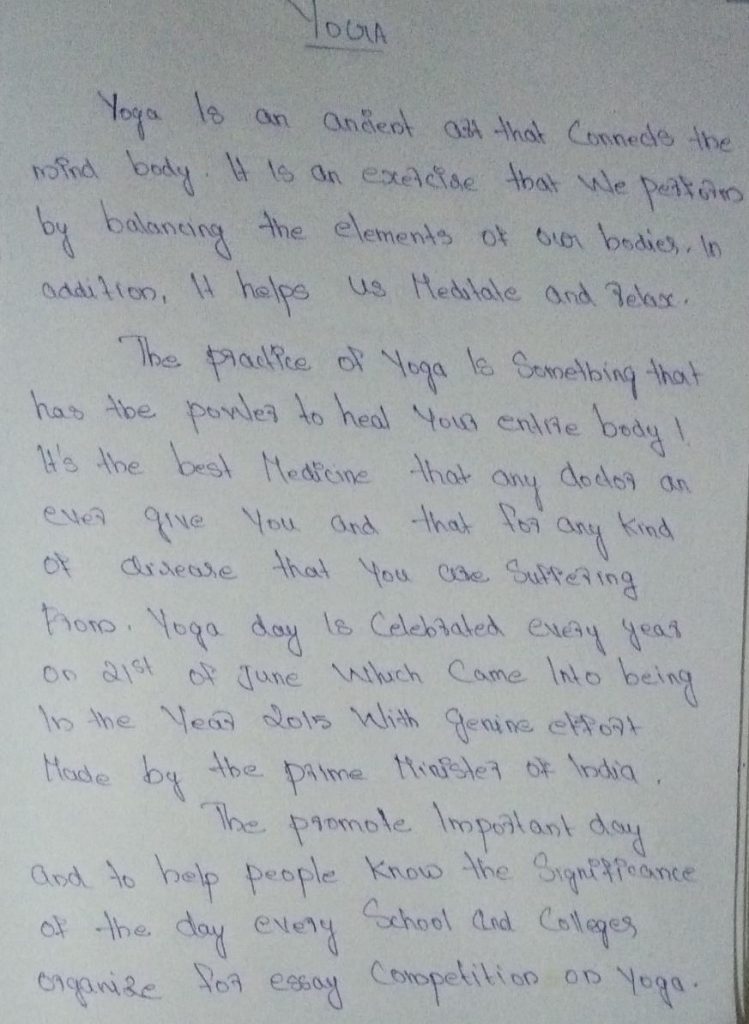 YOGA
Yoga Is an ancient art that Connects the
mind body. It Is an exercise that We perform
by balancing the elements of our bodies. In
addition, It helps us Meditate and Relax.
The practice of Yoga Is Something that
has the power to heal Your entire body!
It's the best Medicine that any doctor an
ever give You and that for any Kind
of disease that You are Suffering
From. Yoga day Is Celebrated every year
on 21st of June Which Came Into being
In the Year 2015 With Genine effort
Made by the prime Minister of India.
The promote Important day
and to help people Know the Significance
of the day every School and Colleges
organize for essay Competition on Yoga.